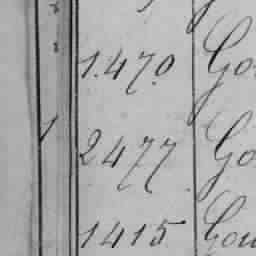 1.470 Go
1 2477 Go
1415 Gou